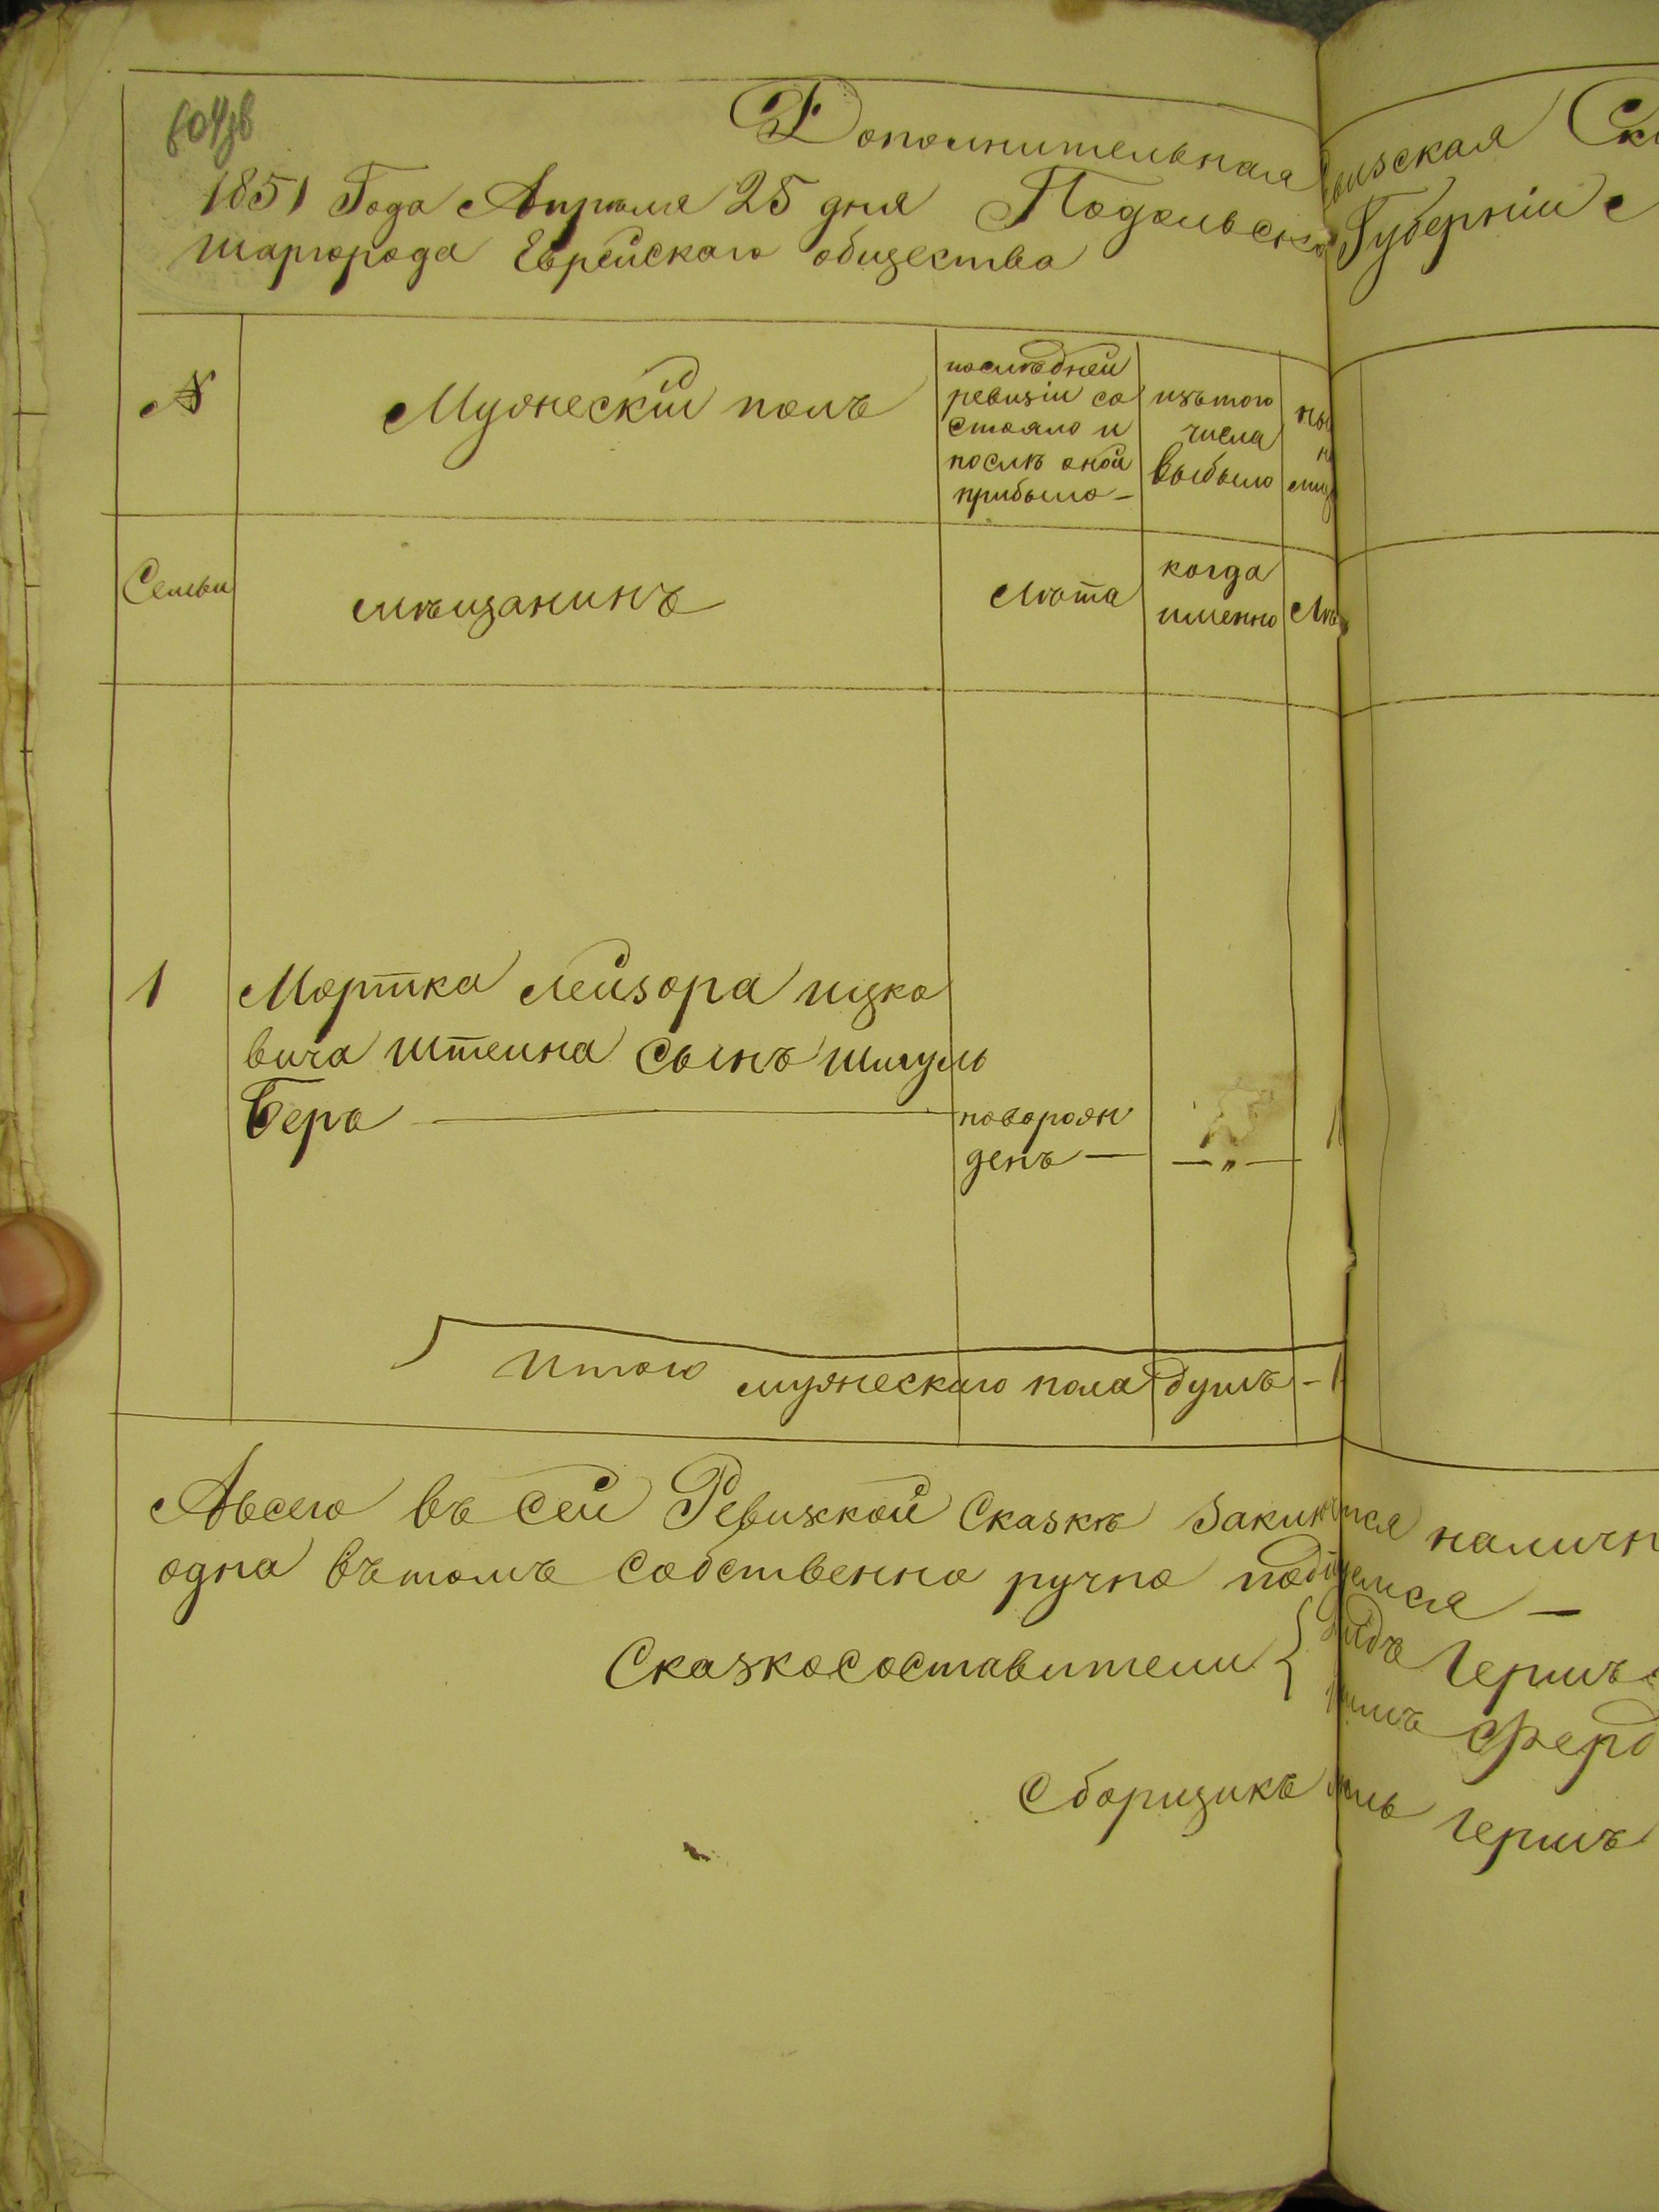 Дополнительная Ревизская Ск
1851 Года Апреля 25 дня Подольской Губерніи
шаргорода Еврейскаго общества
№
Мужескій полъ
последней
ревизіи со
стояло и
послѣ оной
прибыло -
изъ того
числа
выбыло
ны
Семьи
мѣщанинъ
Лѣта
когда
именно
Лѣ
1
Мортка Лейзора ицко
вича штеина сынъ шмуль
Беръ
новорож
денъ —
— „ —
1
Итого мужескаго пола душъ - 1
Авсего въ сей Ревизкой Сказкѣ наличн
одна вътомъ собственно ручно
Сказкосоставители {
Гершъ
Ферд
Сборщикъ
Гершъ